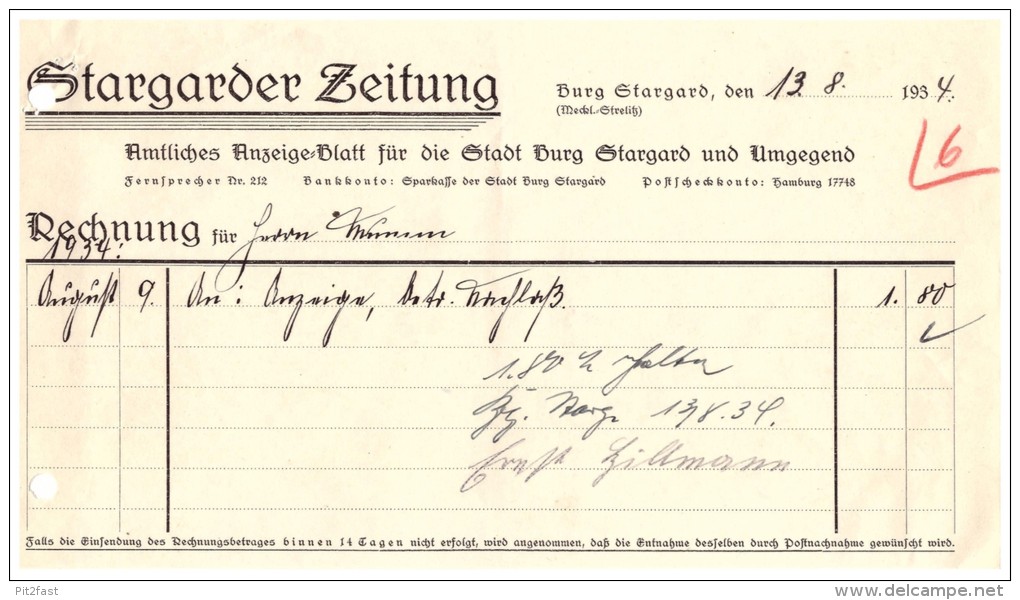 Stargarder Zeitung
Burg Stargard, den 13. 8. 1934.
(Meckl.-Strelitz)
6
Amtliches Anzeige-Blatt für die Stadt Burg Stargard und Umgegend
Fernsprecher Nr. 212 Bankkonto: Sparkasse der Stadt Burg Stargard Postscheckkonto: Hamburg 17748
Rechnung für Herrn
1934:
August 9. An: Anzeige, betr. Nachlaß. 1. 80
1.80 erhalten
Bg. Starg. 13/8.34.
Ernst Hillmann
Falls die Einsendung des Rechnungsbetrages binnen 14 Tagen nicht erfolgt, wird angenommen, daß die Entnahme desselben durch Postnachnahme gewünscht wird.
Pit2fast
www.delcampe.net